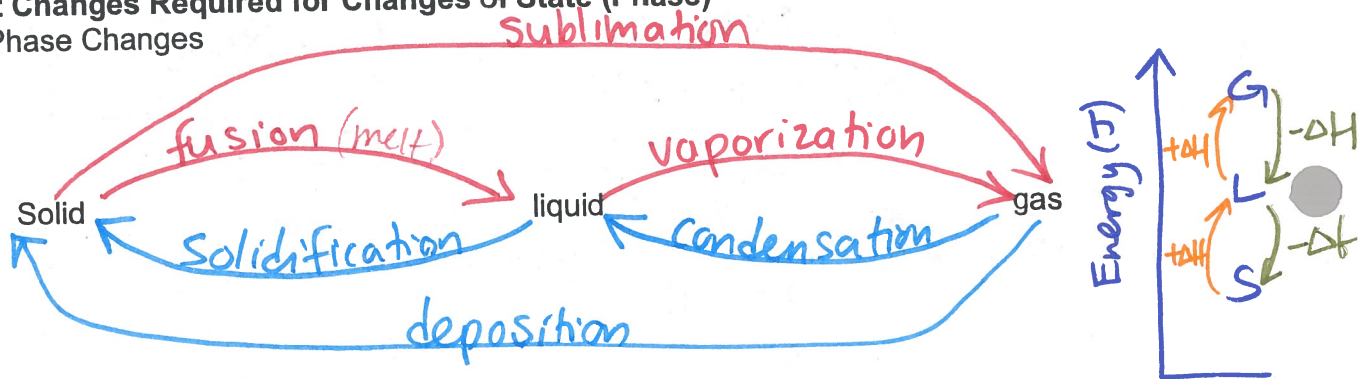 : Changes Required for Changes of State (Phase)
Phase Changes
sublimation
fusion (melt)
vaporization
Solid
liquid
gas
Solidification
condensation
deposition
Energy (J)
G
+ΔH
-ΔH
L
+ΔH
-ΔH
S